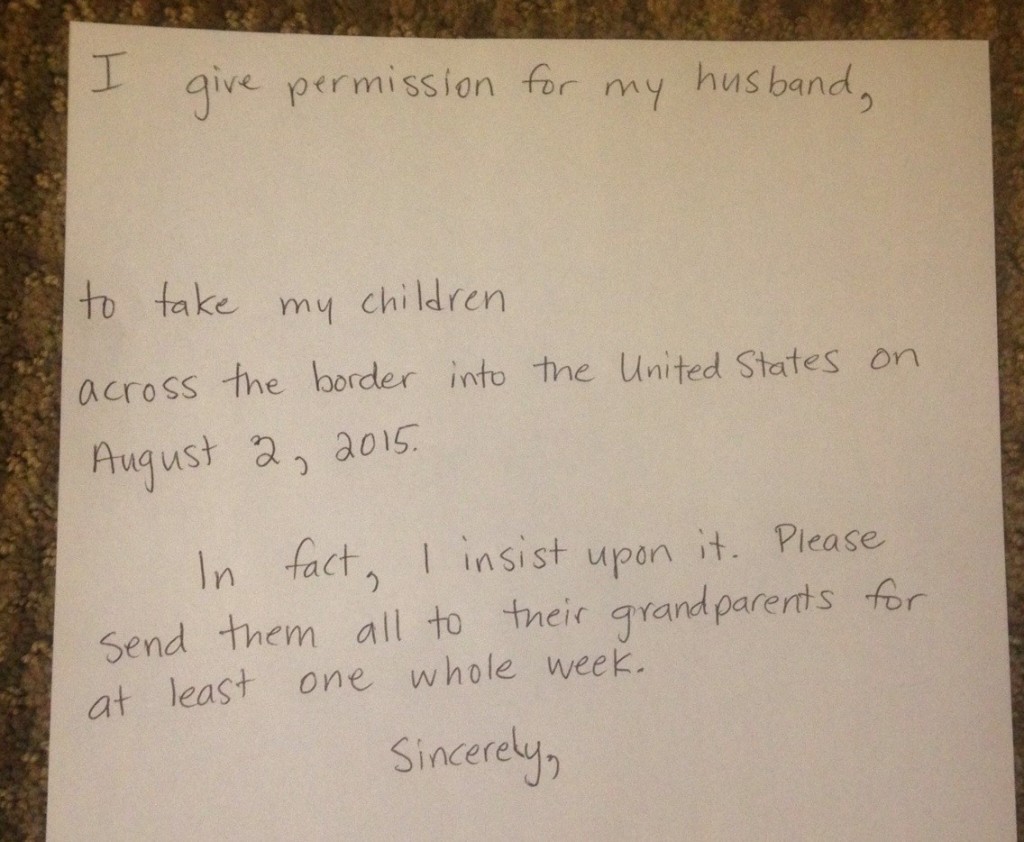 I give permission for my husband,
to take my children
across the border into the United States on
August 2, 2015.
In fact, I insist upon it. Please
send them all to their grandparents for
at least one whole week.
Sincerely,